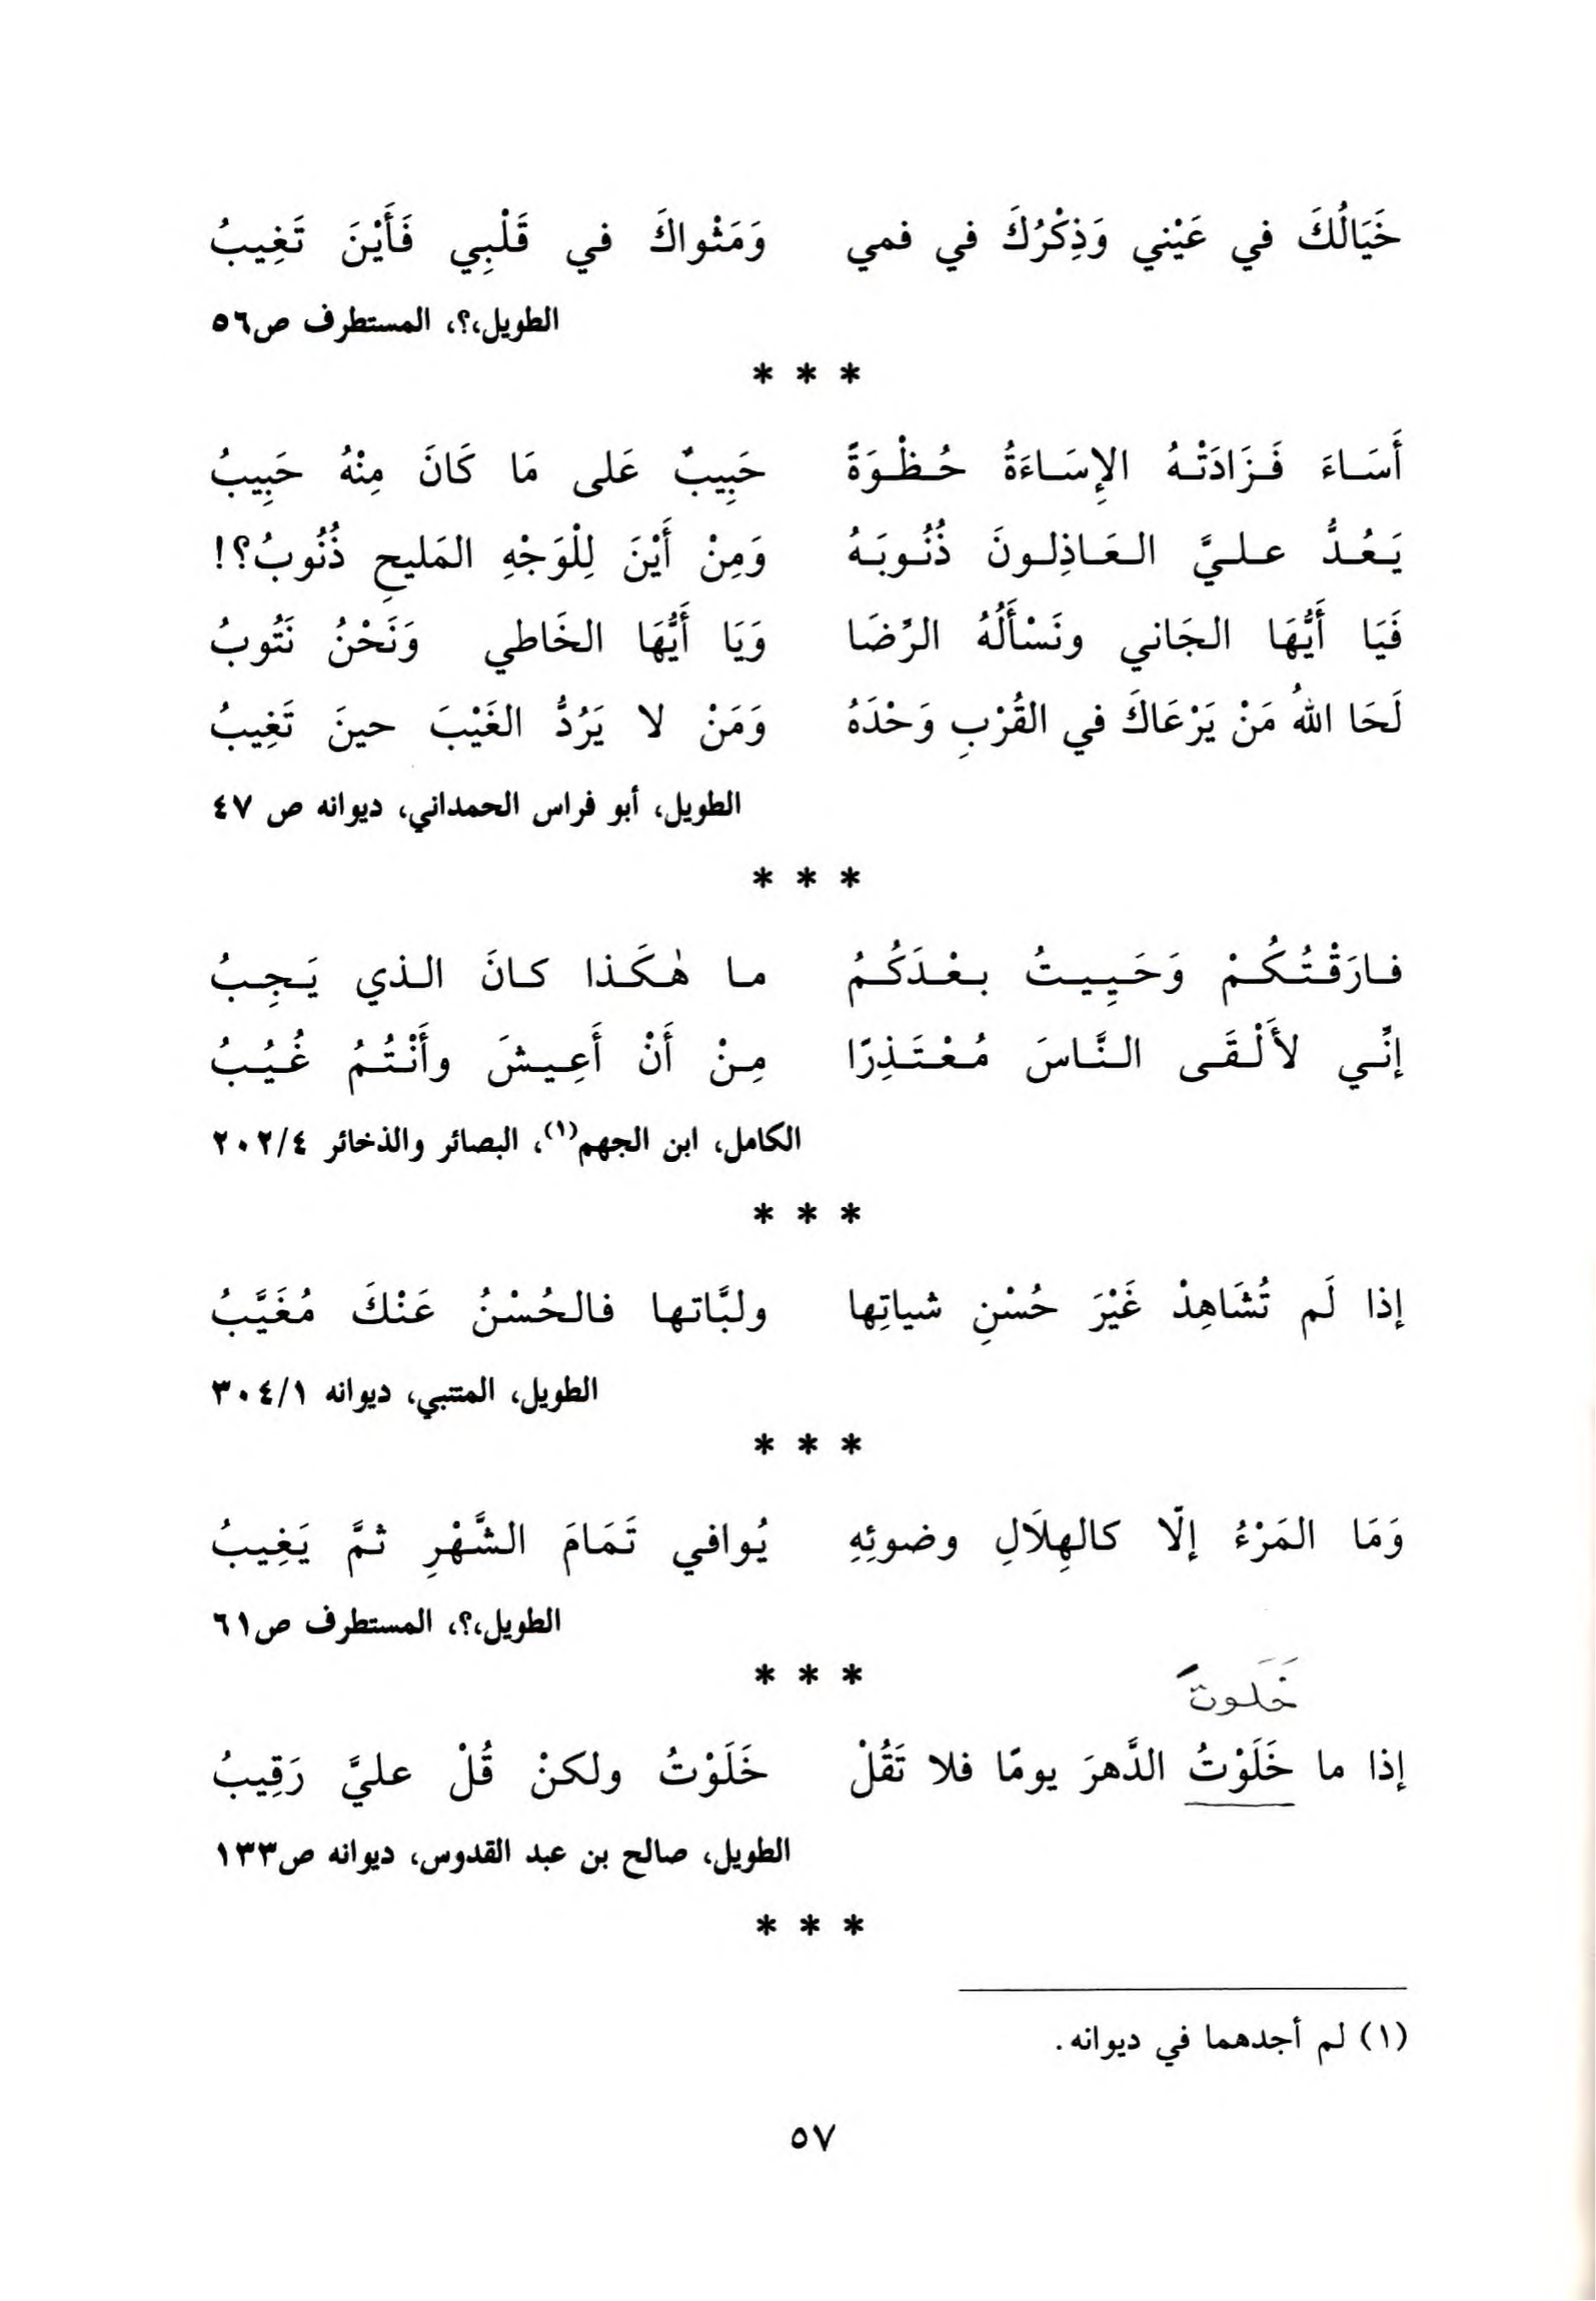 خَيَالُكَ في عَيْني وَذِكْرُكَ في فمي وَمَثْواكَ في قَلْبِي فَأَيْنَ تَغِيبُ
الطويل،؟، المستطرف ص٥٦
* * *
أَسَاءَ فَزَادَتْهُ الإِسَاءَةُ حُظْوَةً حَبِيبٌ عَلى مَا كَانَ مِنْهُ حَبِيبُ
يَعُدُّ عليَّ العَاذِلونَ ذُنُوبَهُ وَمِنْ أَيْنَ لِلْوَجْهِ المَليحِ ذُنُوبُ؟!
فَيَا أَيُّهَا الجَاني ونَسْأَلُهُ الرِّضَا وَيَا أَيُّهَا الخَاطي وَنَحْنُ نَتُوبُ
لَحَا اللهُ مَنْ يَرْعَاكَ في القُرْبِ وَحْدَهُ وَمَنْ لا يَرُدُّ الغَيْبَ حينَ تَغِيبُ
الطويل، أبو فراس الحمداني، ديوانه ص ٤٧
* * *
فارَقْتُكُمْ وَحَيِيتُ بعْدَكُمُ ما هٰكَذا كانَ الذي يَجِبُ
إنِّي لأَلْقَى النَّاسَ مُعْتَذِرًا مِنْ أَنْ أَعِيشَ وأَنْتُمُ غُيُبُ
الكامل، ابن الجهم(١)، البصائر والذخائر ٢٠٢/٤
* * *
إذا لَم تُشَاهِدْ غَيْرَ حُسْنِ شياتِها ولبَّاتها فالحُسْنُ عَنْكَ مُغَيَّبُ
الطويل، المتنبي، ديوانه ٣٠٤/١
* * *
وَمَا المَرْءُ إلّا كالهِلَالِ وضوئِهِ يُوافي تَمَامَ الشَّهْرِ ثمَّ يَغِيبُ
الطويل،؟، المستطرف ص٦١
* * *
خَلَوتَ
إذا ما خَلَوْتُ الدَّهرَ يومًا فلا تَقُلْ خَلَوْتُ ولكنْ قُلْ عليَّ رَقِيبُ
الطويل، صالح بن عبد القدوس، ديوانه ص١٣٣
* * *
(١) لم أجدهما في ديوانه.
٥٧